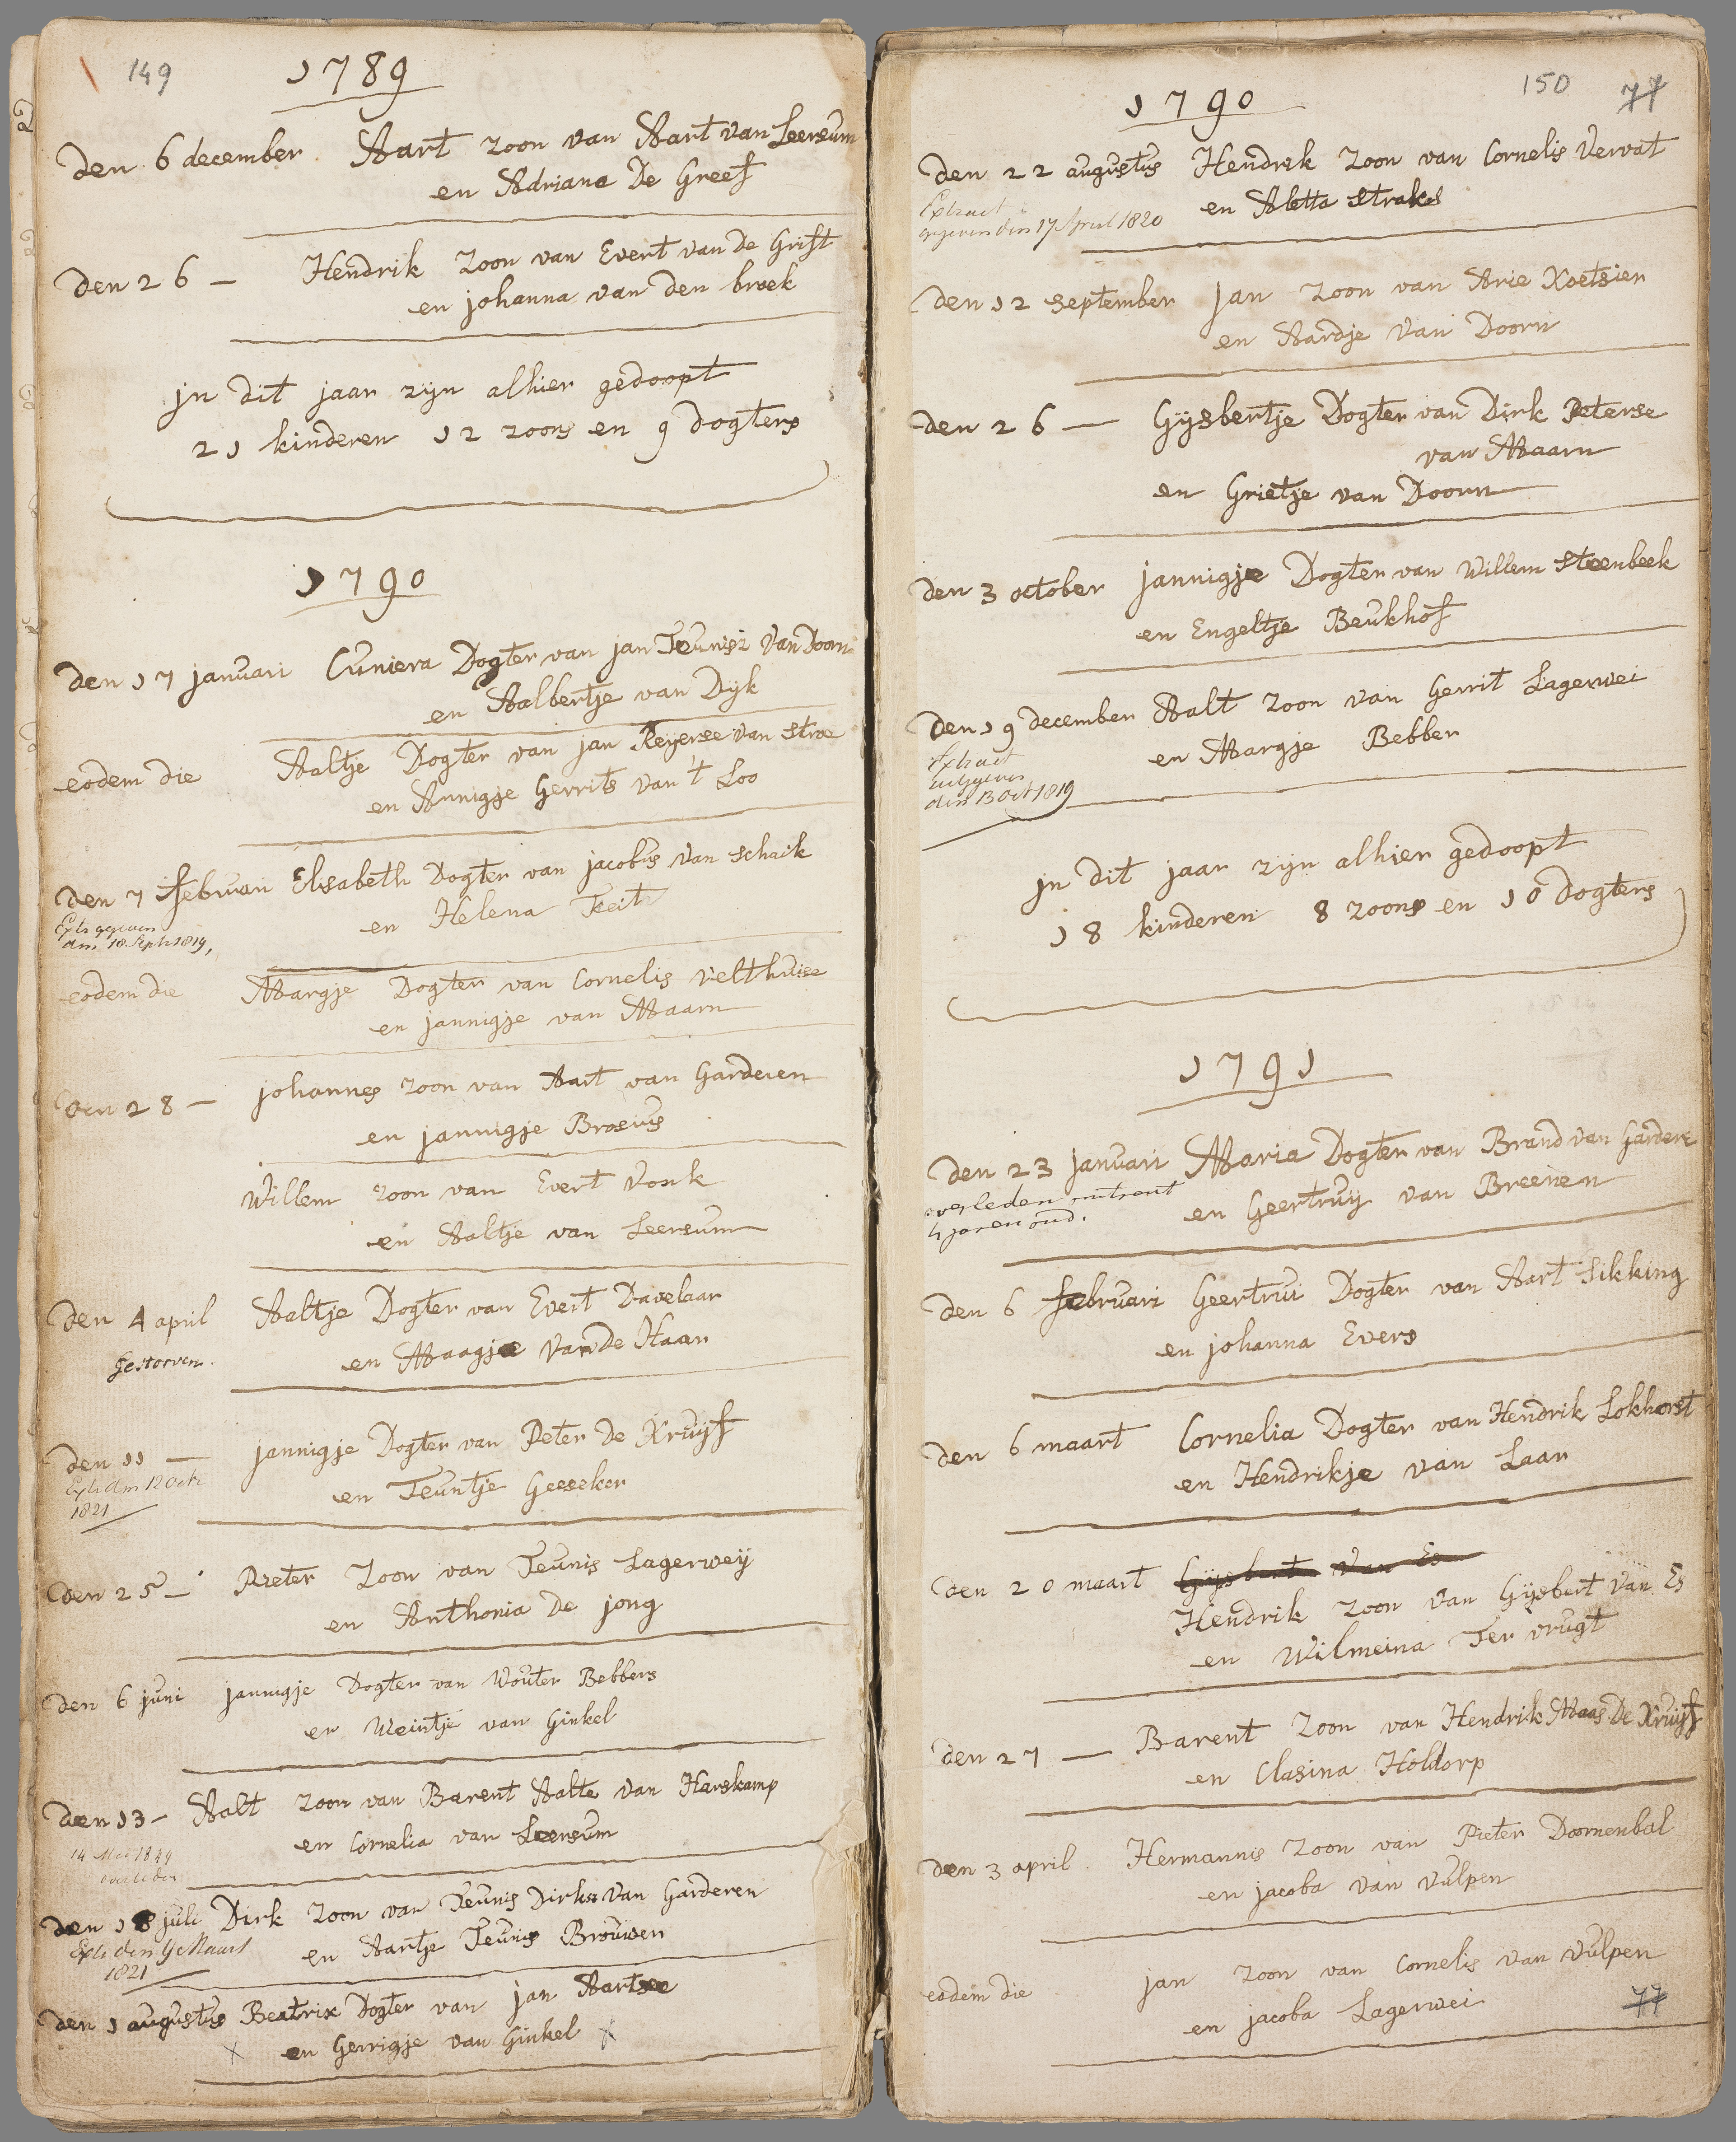 149
1789
Den 6 december Aart zoon van Aart van Leersum
en Adriana De Greef
Den 26 — Hendrik zoon van Evert van De Grift
en johanna van den broek
jn dit jaar zijn alhier gedoopt
21 kinderen 12 zoons en 9 Dogters
1790
Den 17 januari Cuniera Dogter van jan Teunisz van Doorn
en Aalbertje van Dijk
eodem die Aaltje Dogter van jan Reyerse van Stroe
en Annigje Gerrits van 't Loo
Den 7 februari Elisabeth Dogter van jacobus van Schaik
en Helena Feith
Extr gegeven
dan 18 Sept 1819,
eodem die Margje Dogter van Cornelis velthuise
en jannigje van Maarn
Den 28 — johannes zoon van Aart van Garderen
en jannigje Brosius
Willem zoon van Evert Vonk
en Aaltje van Leersum
Den 4 april Aaltje Dogter van Evert Davelaar
en Maagje van de Haar
gestorven.
Den 11 — jannigje Dogter van Peter De Kruijf
en Teuntje Geeseker
Extr dm 12 Octr
1821
Den 25 — Pieter zoon van Teunis Lagerweij
en Anthonia De jong
Den 6 juni jannigje Dogter van Wouter Bebbers
en Weintje van Ginkel
Den 13 — Aalt zoon van Barent Aalte van Harskamp
en Cornelia van Leersum
14 Mei 1849
overleden
Den 18 juli Dirk zoon van Teunis Dirksz van Garderen
en Aartje Teunis Brouwer
Extr den 9 Maart
1821
Den 1 augustus Beatrix Dogter van jan Aartse
x en Gerrigje van Ginkel x
150 77
1790
Den 22 augustus Hendrik zoon van Cornelis Vervat
en Aletta Strakes
Extract
gegeven den 17 April 1820
Den 12 september jan zoon van Arie Koetsier
en Aardje van Doorn
Den 26 — Gijsbertje Dogter van Dirk Peterse
van Maarn
en Grietje van Doorn
Den 3 october jannigje Dogter van Willem Steenbeek
en Engeltje Beukhof
Den 19 december Aalt zoon van Gerrit Lagerwei
en Margje Bebber
Extract
uitgegeven
den 13 Oct 1819
jn dit jaar zijn alhier gedoopt
18 kinderen 8 zoons en 10 Dogters
1791
Den 23 januari Maria Dogter van Brand van Gardere
en Geertruy van Breenen
overleden omtrent
4 jaren oud.
Den 6 februari Geertrui Dogter van Aart Sikking
en johanna Evers
Den 6 maart Cornelia Dogter van Hendrik Lokhorst
en Hendrikje van Laar
Den 20 maart Gijsbert van Es
Hendrik zoon van Gijsbert van Es
en Wilmeina Ter vrugt
Den 27 — Barent zoon van Hendrik Maas De Kruijf
en Clasina Holdorp
Den 3 april Hermannis zoon van Pieter Doornenbal
en jacoba van Vulpen
eodem die jan zoon van Cornelis van Vulpen
en jacoba Lagerwei
77